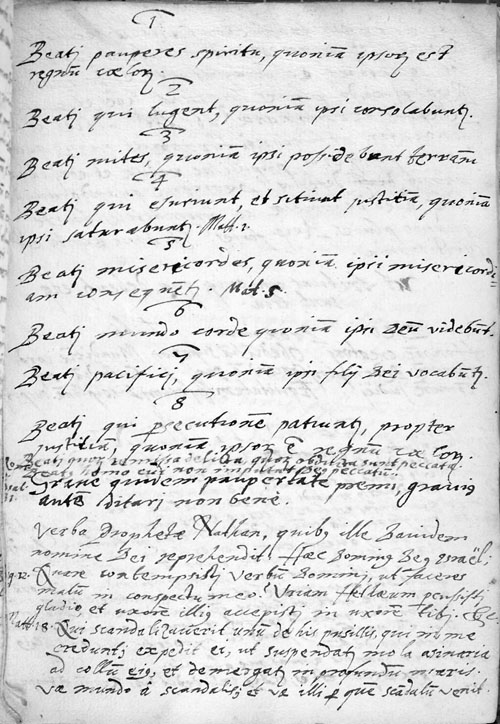 1
Beatj pauperes spiritu, quoniā ipsoꝝ est
regnū cœloꝝ.
2
Beatj qui lugent, quoniā ipsi consolabuntꝭ.
3
Beatj mites, quoniā ipsi possidebunt terram
4
Beatj qui esuriunt, et sitiunt justitiā, quoniā
ipsi saturabuntꝭ. Matt.
5
Beatj misericordes, quoniā ipsi misericordi=
am consequētꝭ Mat. 5.
6
Beatj mundo corde quoniā ipsi Deū videbūt.
7
Beatj pacificj, quoniā ipsi filij Dei vocabūtꝭ.
8
Beatj qui ꝑsecutionē patiuntꝭ, propter
justitiā, quoniā ipsoꝝ ē regnū cœloꝝ.
Beatj quoꝝ remissa delicta, quoꝝ sunt peccata.
Beatꝰ homo cui non Deꝰ peccatū.
Grave quidem paupertate premi, graviꝰ
ditari non bene.
Verba Prophetæ Nathan, quibꝰ ille Davidem
nomine Dei reprehendit. Hæc Dominꝰ Deꝰ Israël;
12. Quare contempsisti verbū Dominj, ut faceres
malū in conspectu meo? Uriam Hethæum percussisti
gladio et uxorē illiꝰ accepisti in uxorē tibj. &c.
Matt. 18. Qui scandalizaverit unū de his pusillis, qui in me
credunt, expedit ei, ut suspendatꝭ mola asinaria
ad collū eiꝰ, et demergatꝭ in profundū maris.
væ mundo à scandalis, et væ illi ꝑ que scādalū venit.